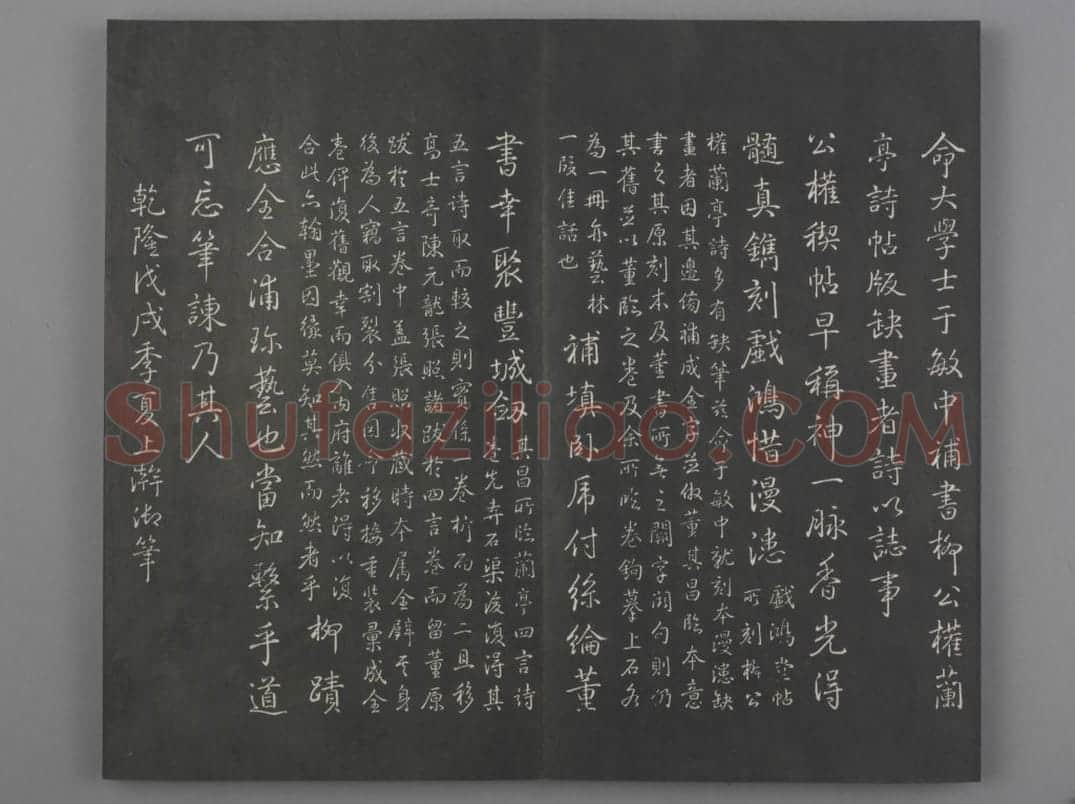 命大學士于敏中補書柳公權蘭
亭詩帖版缺畫者詩以誌事
公權稧帖早稱神一脈香光得
髓真鐫刻戲鴻惜漫漶
戲鴻堂帖
所刻柳公
權蘭亭詩多有缺筆茲命于敏中就刻本漫漶缺
畫者因其邊傍補成全字並倣董其昌臨本意
書之其原刻本及董書所無之闕字闕句則仍
其舊並以董臨之卷及余所臨卷鉤摹上石各
為一冊亦藝林
一段佳話也
補填卧虎付絲綸董
書幸聚豐城劔
其昌所臨蘭亭四言詩
卷先弆石渠後復得其
五言詩取而較之則實係一卷析而為二且移
高士奇陳元龍張照諸跋於四言卷而留董原
跋於五言卷中蓋張照收藏時本属全璧其身
後為人竊取割裂分售因命移接重裝彙成全
卷俾復舊觀幸而俱入內府離者得以復
合此亦翰墨因緣莫知其然而然者乎
柳蹟
應全合浦珎藝也當知繫乎道
可忘筆諫乃其人
乾隆戊戌季夏上澣御筆
Shufaziliao.COM